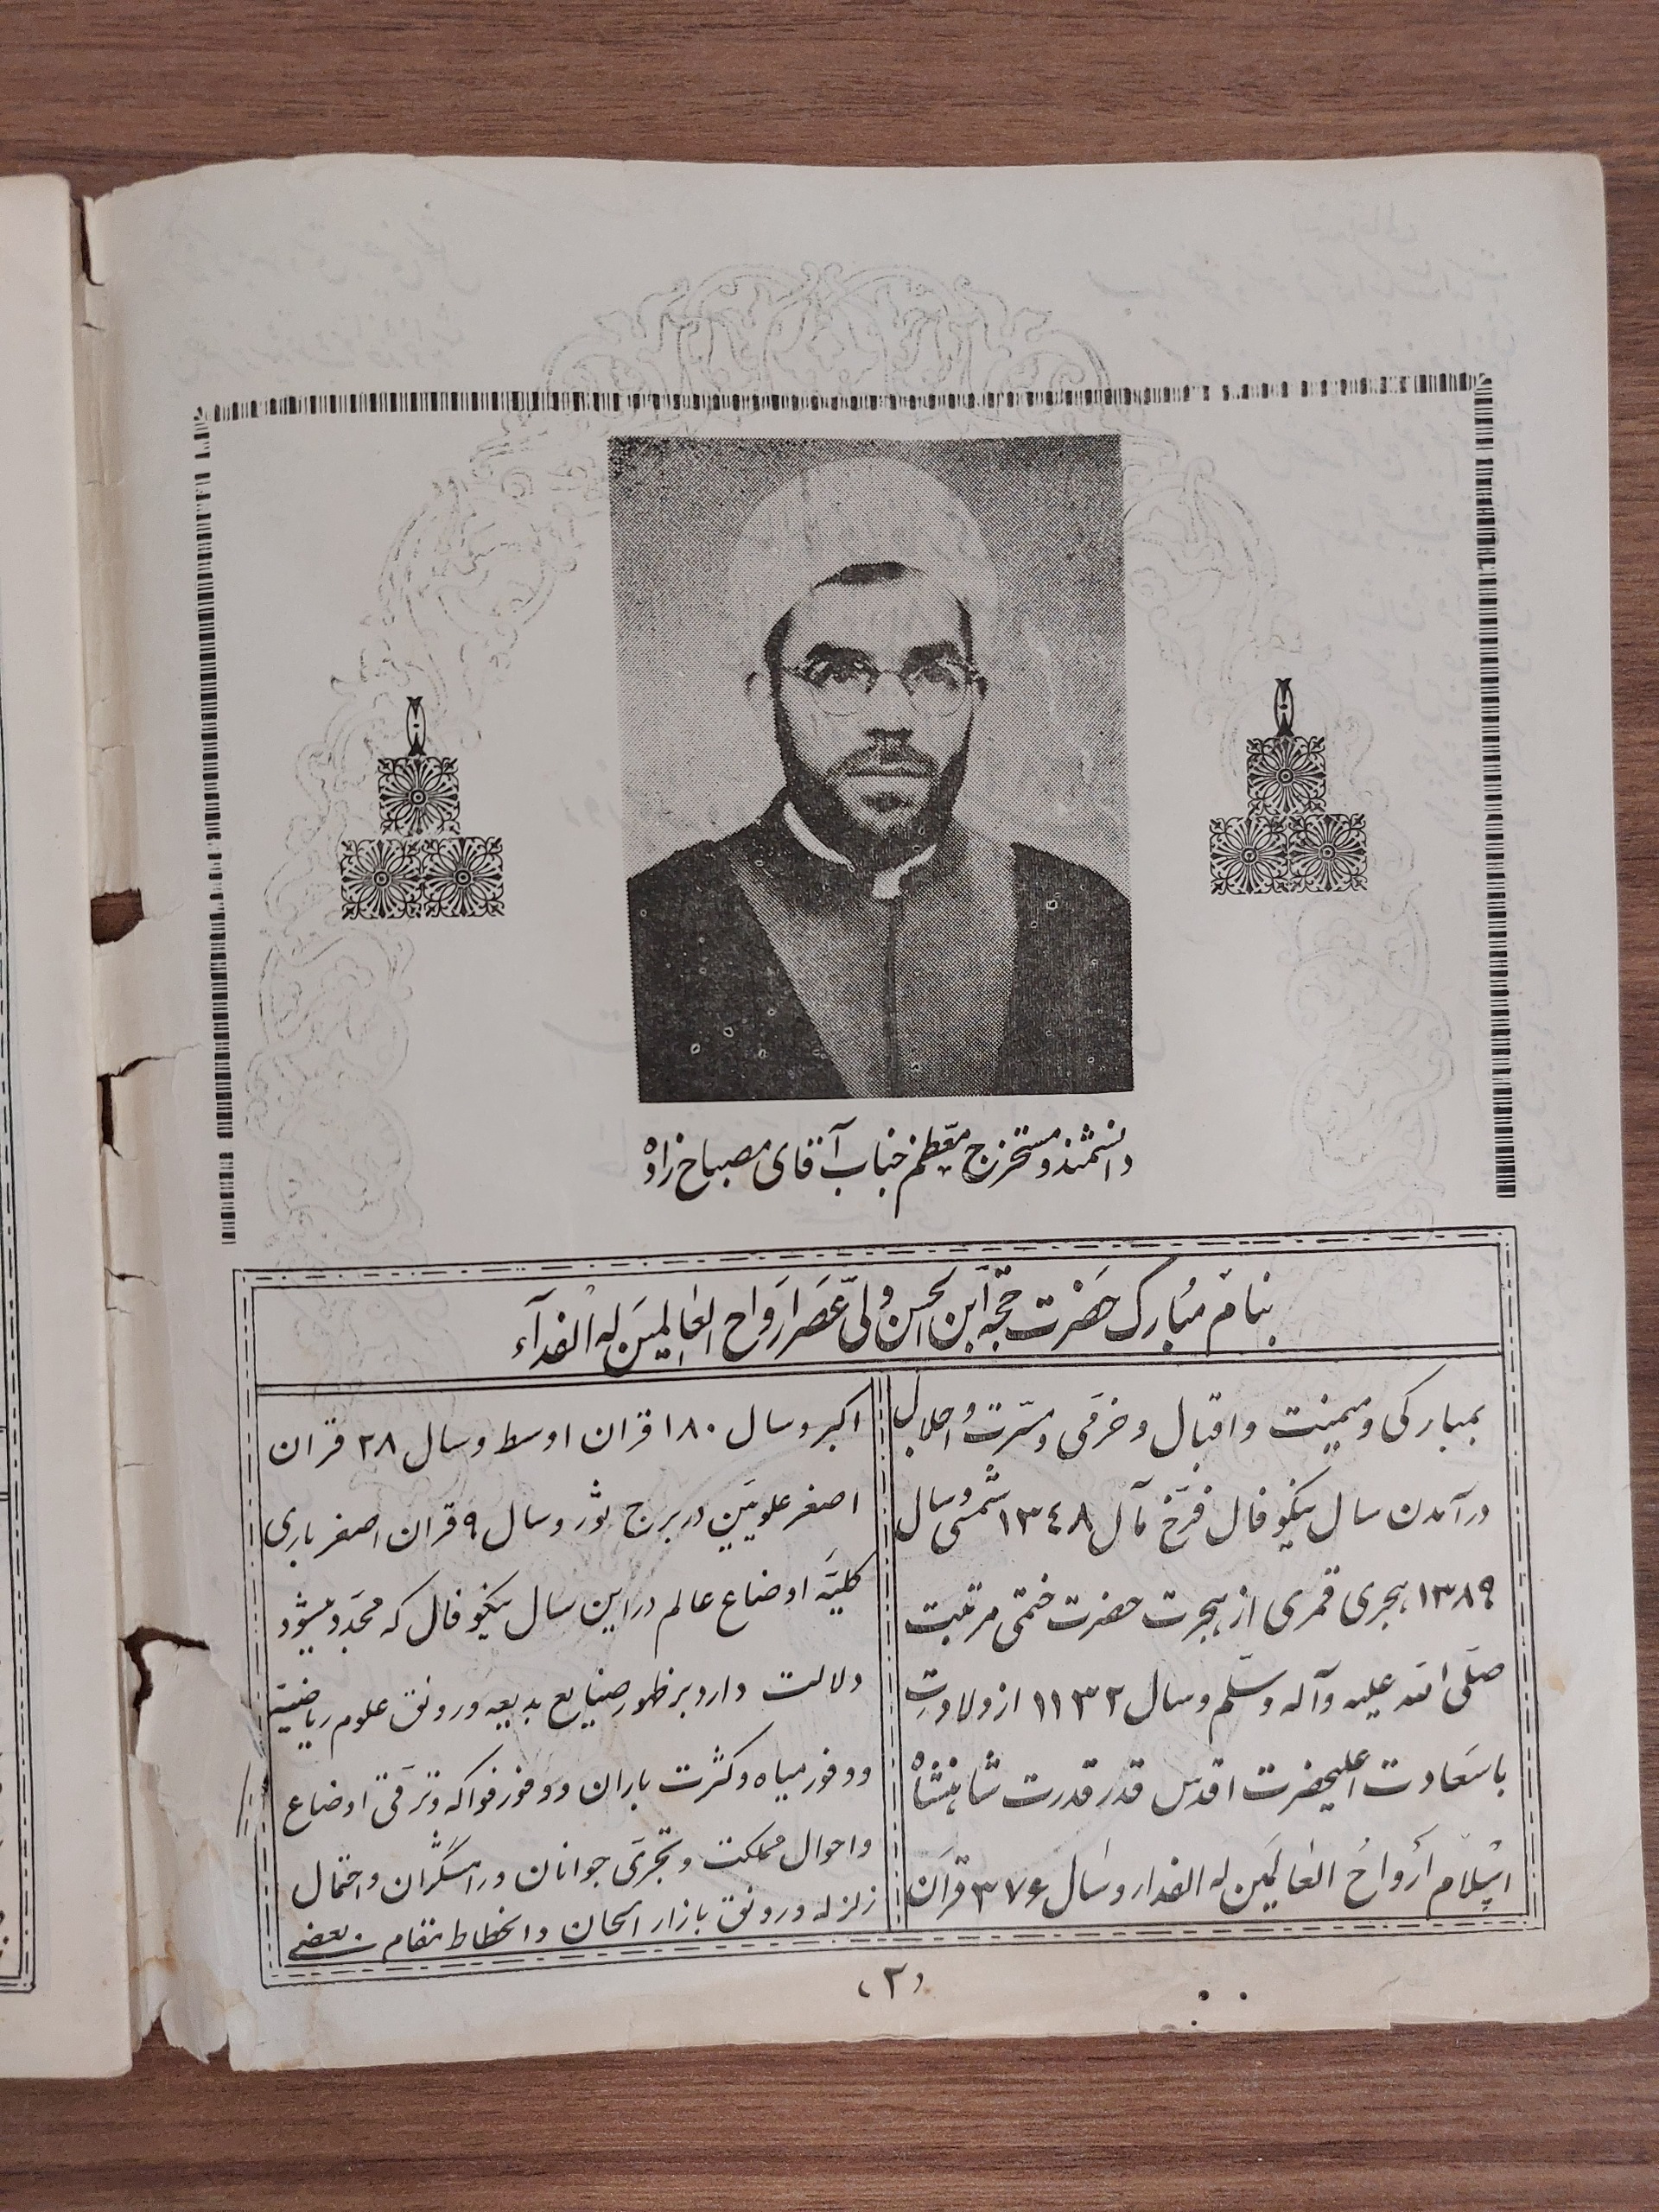 دانشمند و مستخرج معظم جناب آقای مصباح زاده
بنام مبارک حضرت حجّة ابن الحسن ولیّ عصر ارواح العالمین له الفدآء
بمبارکی و میمنت و اقبال و خرمی و مسرّت و اجلال
درآمدن سال نیکو فال فرّخ مآل ۱۳٤۸ شمسی و سال
۱۳۸۹ هجری قمری از هجرت حضرت ختمی مرتبت
صلّی الله علیه وآله وسلّم و سال ۱۱۳۲ از ولادت
باسعادت اعلیحضرت اقدس قدر قدرت شاهنشاه
اسلام أرواحُ العالَمین له الفدا و سال ۳۷۶ قران
اکبر و سال ۱۸۰ قران اوسط و سال ۲۸ قران
اصغر علویّین در برج ثور و سال ۹ قران اصغر باری
کلیّه اوضاع عالم در این سال نیکو فال که مجدّد میشود
دلالت دارد بر ظهور صنایع بدیعه و رونق علوم ریاضیّه
و وفور میاه و کثرت باران و وفور فواکه و ترقّی اوضاع
و احوال مملکت و تجرّی جوانان و رامشگران و احتمال
زلزله و رونق بازار الحان و انحطاط مقام بعضی
(۲)